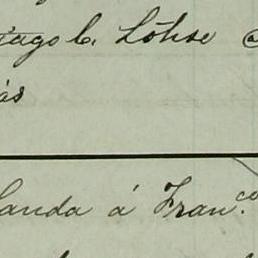 iago C. Löhse
ás
anda á Fran.co